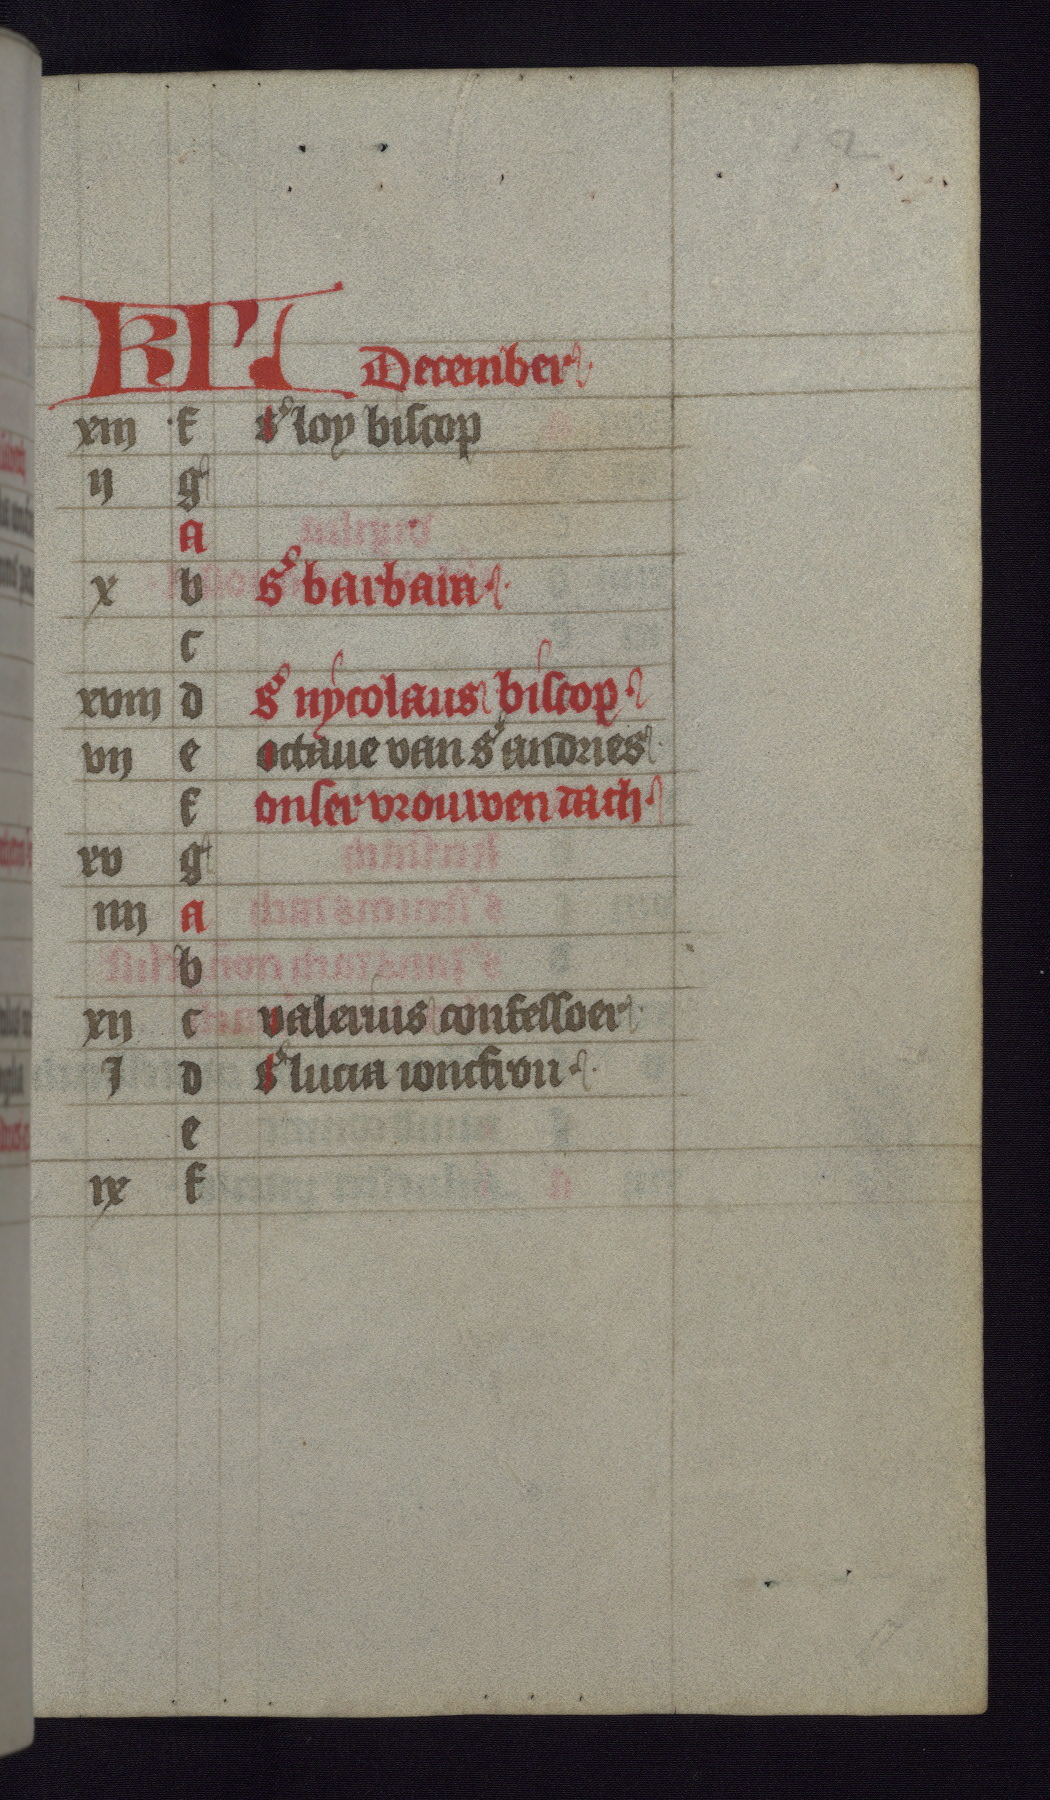 KL December
xiij f sᵉ loy biscop
ij g
a
x b sᵉ barbara
c
xviij d sᵉ nycolaus biscop
vij e octaue van sᵉ andries
f onser vrouwen dach
xv g
iiij a
b
xij c valerius confessoer
j d sᵉ lucia ioncfrou
e
ix f
12